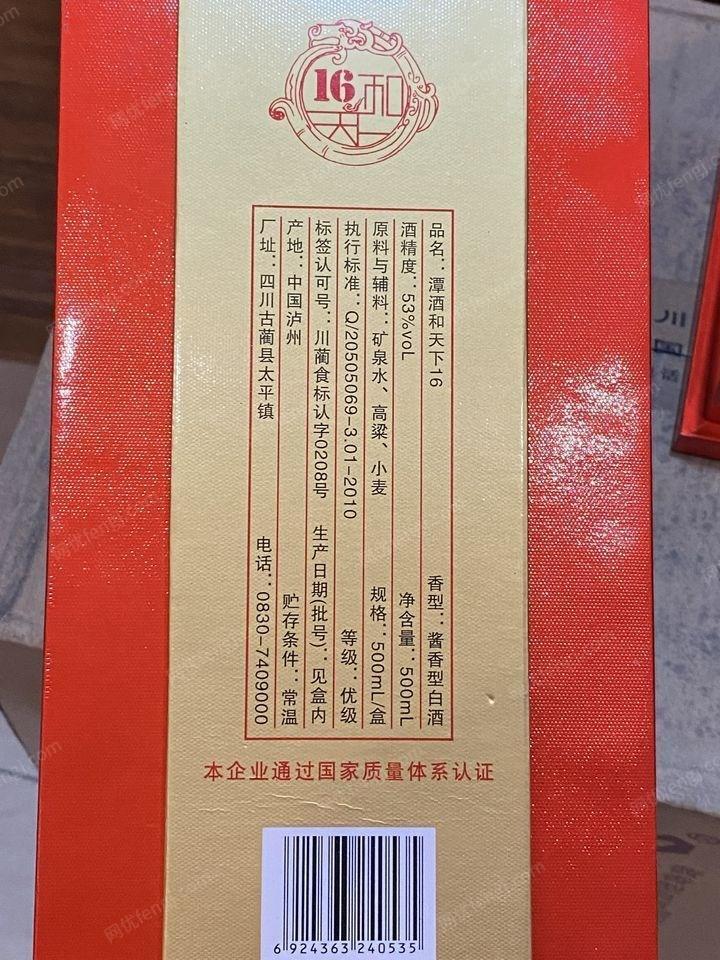 16 和天下
品名：潭酒和天下16 香型：酱香型白酒
酒精度：53%voL 净含量：500mL
原料与辅料：矿泉水、高粱、小麦 规格：500mL/盒
执行标准：Q/20505069-3.01-2010 等级：优级
标签认可号：川蔺食标认字0208号 生产日期(批号)：见盒内
产地：中国泸州 贮存条件：常温
厂址：四川古蔺县太平镇 电话：0830-7409000
本企业通过国家质量体系认证
6 924363 240535
网优fengj.com